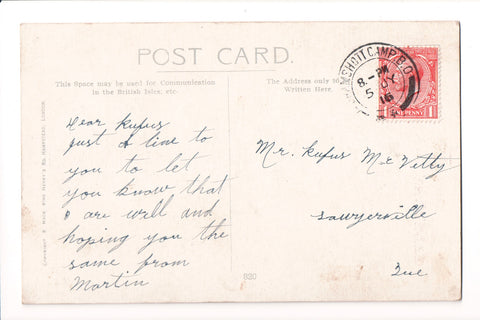 POST CARD.
This Space may be used for Communication
in the British Isles, etc.
The Address only to be
Written Here.
Dear Rufus
Just A line to
you to let
you know that
I are well and
hoping you the
same from
Martin
Mr. Rufus McVetty
Sawyerville
Que
820
8 - PM
5 JY
16
CAMP B.O.
PENNY
1